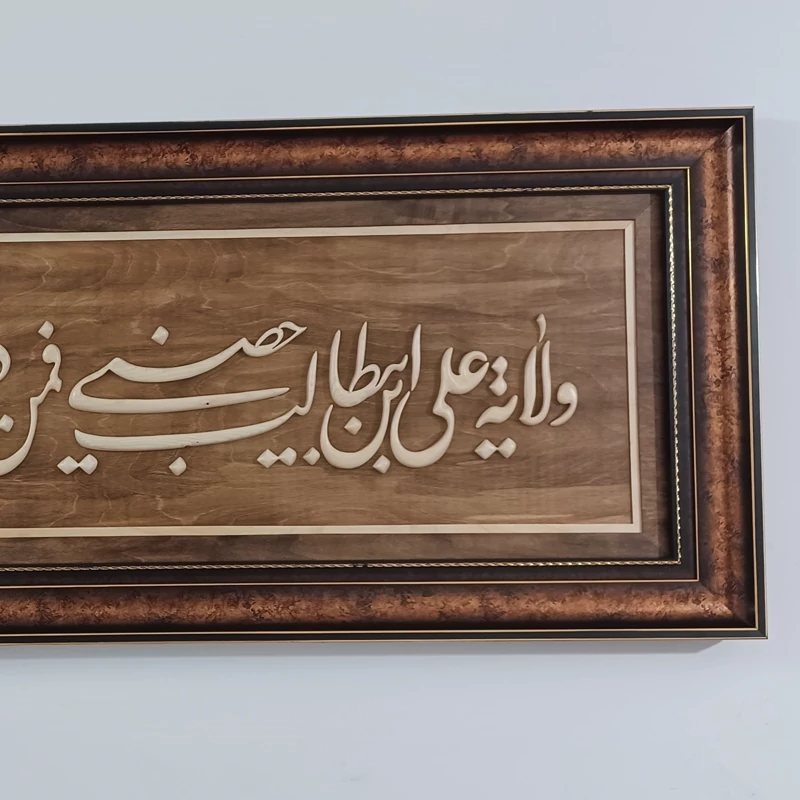 ولایة علی ابن ابیطالب حصنی فمن